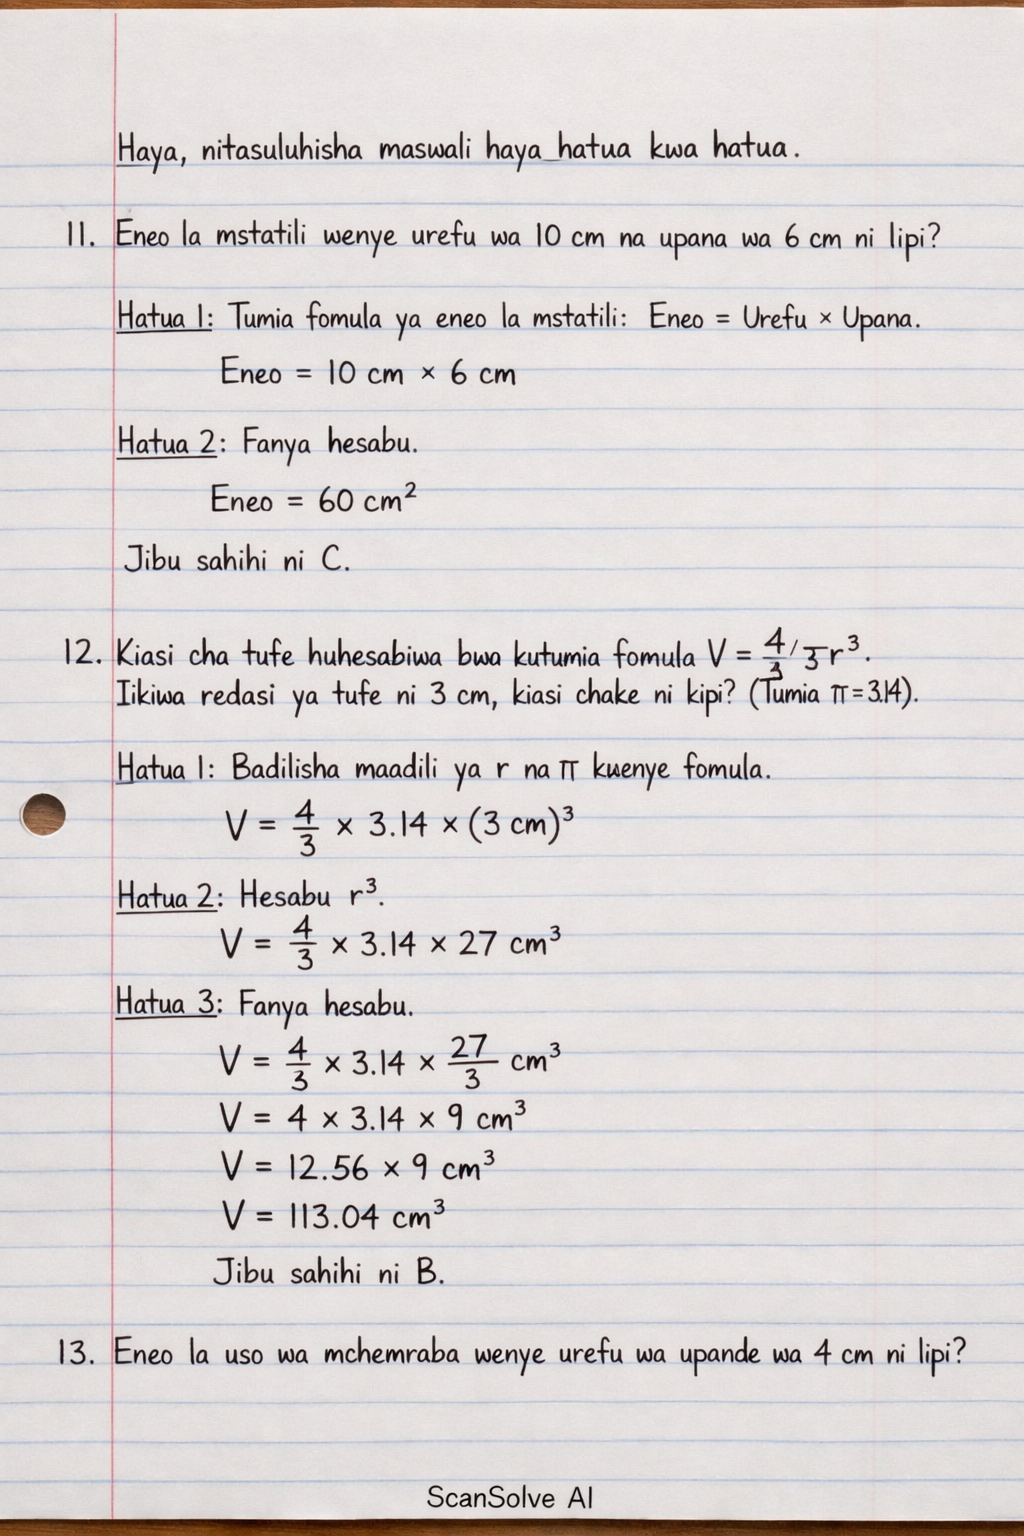 Haya, nitasuluhisha maswali haya hatua kwa hatua.
11. Eneo la mstatili wenye urefu wa 10 cm na upana wa 6 cm ni lipi?
Hatua 1: Tumia fomula ya eneo la mstatili: Eneo = Urefu × Upana.
Eneo = 10 cm × 6 cm
Hatua 2: Fanya hesabu.
Eneo = 60 cm²
Jibu sahihi ni C.
12. Kiasi cha tufe huhesabiwa bwa kutumia fomula V = 4/3 r³.
Iikiwa redasi ya tufe ni 3 cm, kiasi chake ni kipi? (Tumia π = 3.14).
Hatua 1: Badilisha maadili ya r na π kwenye fomula.
V = 4/3 × 3.14 × (3 cm)³
Hatua 2: Hesabu r³.
V = 4/3 × 3.14 × 27 cm³
Hatua 3: Fanya hesabu.
V = 4/3 × 3.14 × 27/3 cm³
V = 4 × 3.14 × 9 cm³
V = 12.56 × 9 cm³
V = 113.04 cm³
Jibu sahihi ni B.
13. Eneo la uso wa mchemraba wenye urefu wa upande wa 4 cm ni lipi?
ScanSolve AI